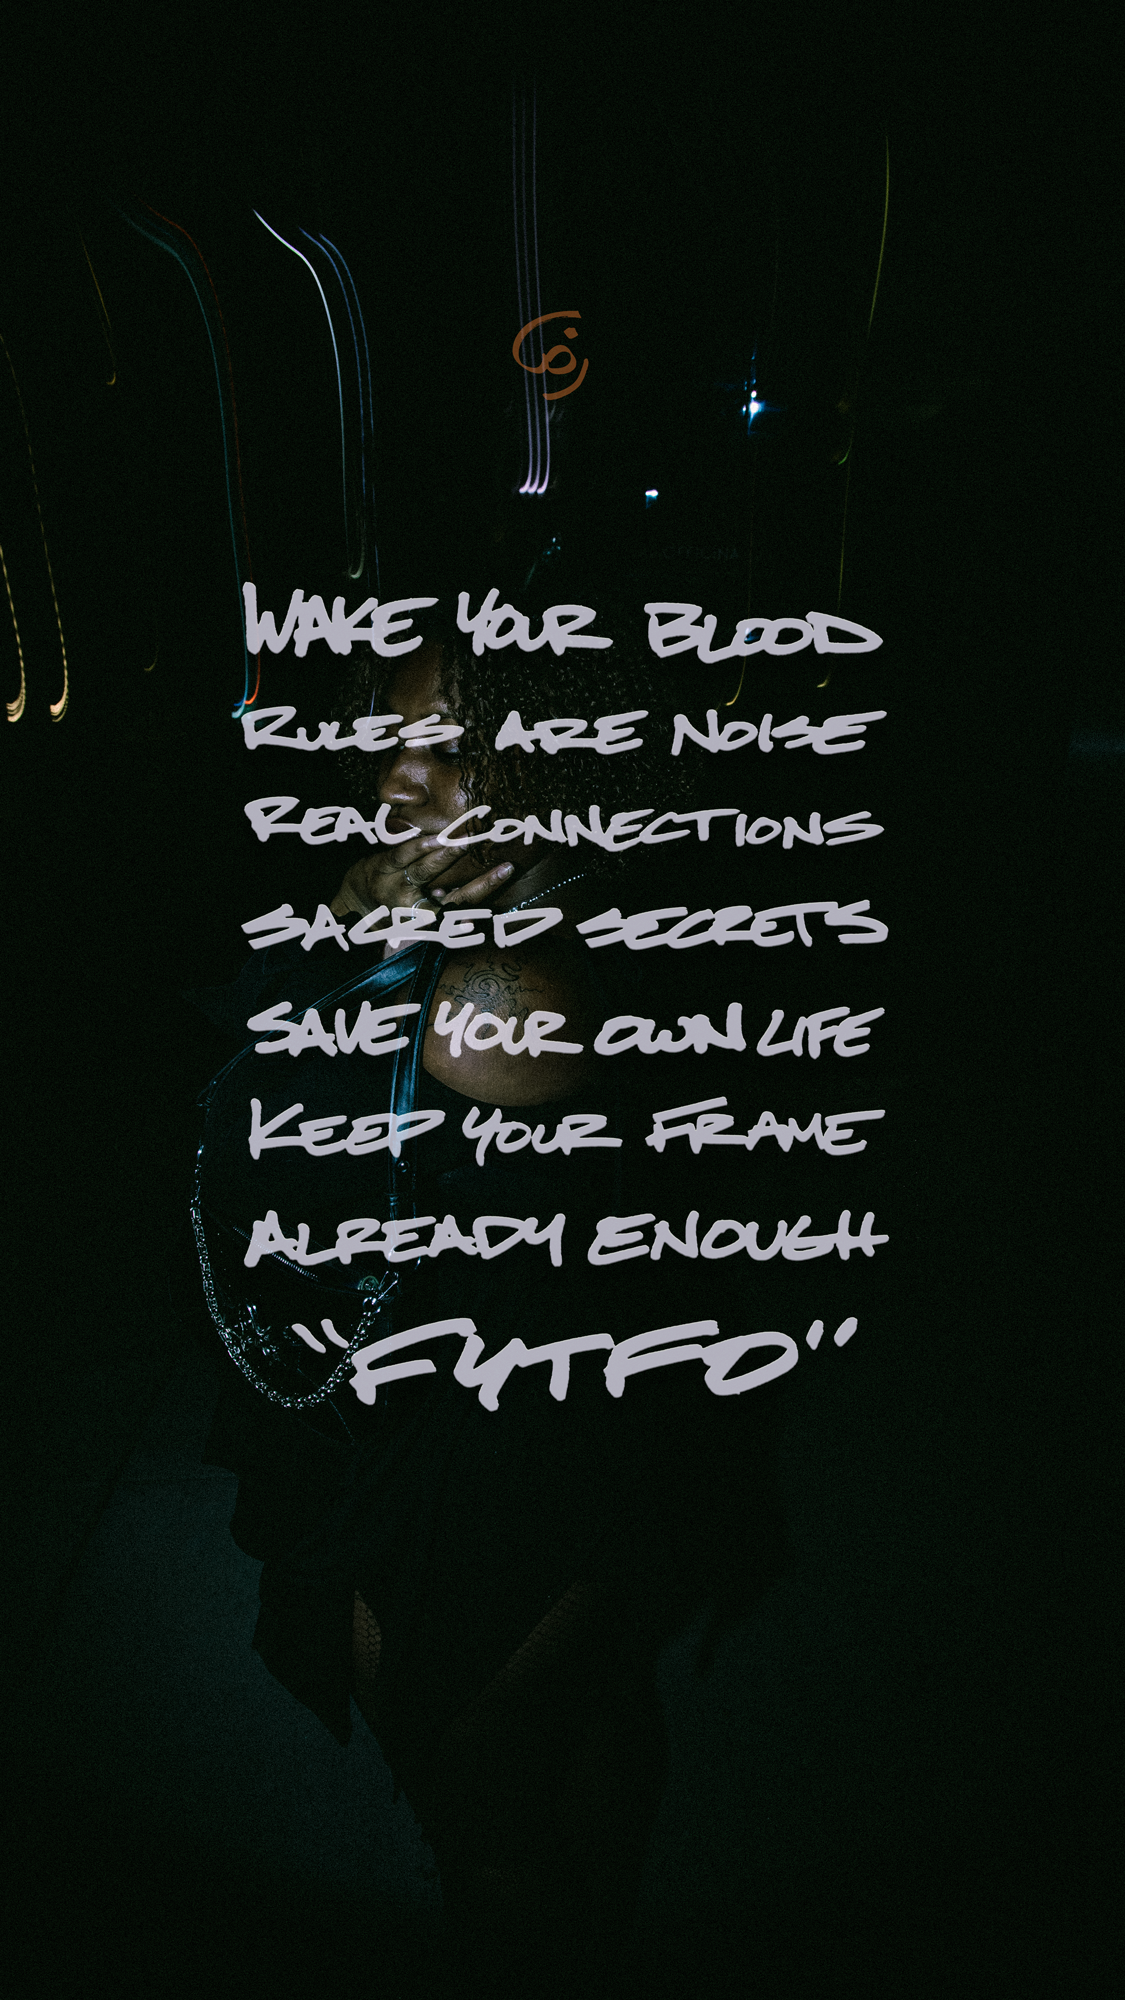 WAKE YOUR BLOOD
RULES ARE NOISE
REAL CONNECTIONS
SACRED SECRETS
SAVE YOUR OWN LIFE
KEEP YOUR FRAME
ALREADY ENOUGH
"FYTFO"